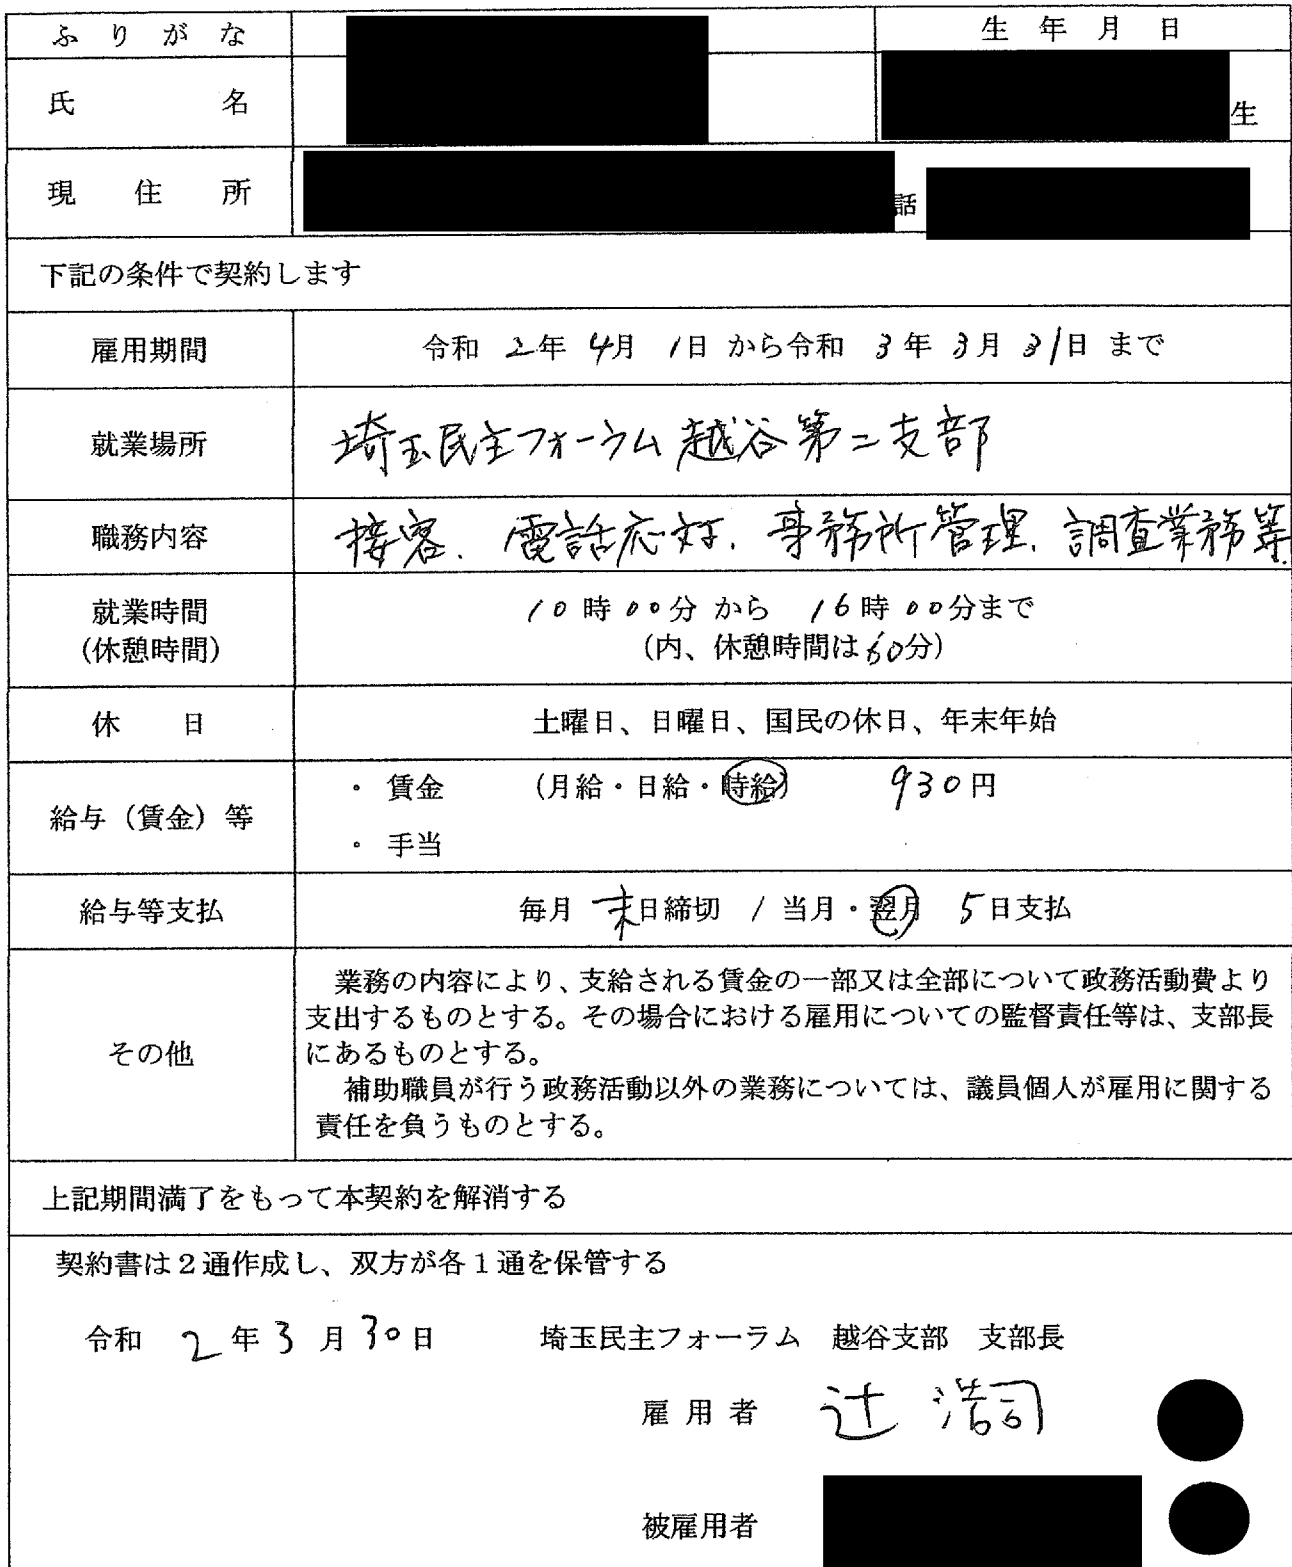 ふりがな
生年月日
氏名
生
現住所
話
下記の条件で契約します
雇用期間
令和 2年 4月 1日 から令和 3年 3月 31日 まで
就業場所
埼玉民主フォーラム越谷第二支部
職務内容
接客、電話応対、事務所管理、調査業務等
就業時間
(休憩時間)
10時00分 から 16時00分まで
(内、休憩時間は60分)
休日
土曜日、日曜日、国民の休日、年末年始
給与(賃金)等
・ 賃金 (月給・日給・時給) 930円
・ 手当
給与等支払
毎月 末日締切 / 当月・翌月 5日支払
その他
業務の内容により、支給される賃金の一部又は全部について政務活動費より
支出するものとする。その場合における雇用についての監督責任等は、支部長
にあるものとする。
補助職員が行う政務活動以外の業務については、議員個人が雇用に関する
責任を負うものとする。
上記期間満了をもって本契約を解消する
契約書は2通作成し、双方が各1通を保管する
令和 2年3月30日 埼玉民主フォーラム 越谷支部 支部長
雇用者 辻 浩司
被雇用者